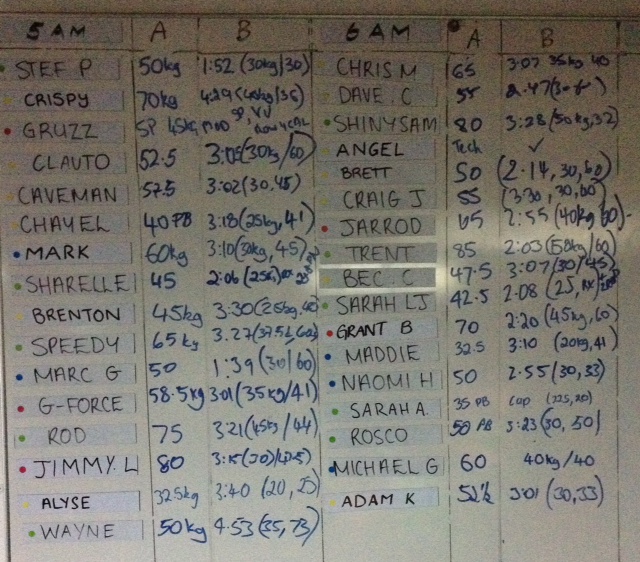 5 AM A B
STEF P 50kg 1:52 (30kg/30)
CRISPY 70kg 4:29
GRUZZ SP 45kg
CLAUTO 52.5 3:05 (30kg/60)
CAVEMAN 57.5 3:02 (30,45)
CHAYEL 40 PB 3:18 (25kg, 41)
MARK 60kg 3:10 (30kg, 45)
SHARELLE 45 2:06
BRENTON 45kg 3:30
SPEEDY 65kg 3:27
MARC G 50 1:39 (30/60)
G-FORCE 58.5kg 3:01 (35kg/41)
ROD 75 3:21 (45kg/44)
JIMMY.L 80 3:15
ALYSE 32.5kg 3:40
WAYNE 50kg 4:53 (35, 73)
6 AM A B
CHRIS M 65 3:07 35kg 40
DAVE.C 55 2:47
SHINYSAM 80 3:28 (50kg, 32)
ANGEL Tech ✓
BRETT 50 (2:14, 30, 60)
CRAIG J 55 (3:30, 30, 60)
JARROD 65 2:55 (40kg 60)
TRENT 85 2:03 (58kg/60)
BEC.C 47.5 3:07 (30/45)
SARAH LJ 42.5 2:08
GRANT B 70 2:20 (45kg, 60)
MADDIE 32.5 3:10 (20kg, 41)
NAOMI H 50 2:55 (30, 33)
SARAH A. 35 PB cap
ROSCO 50 PB 3:23 (30, 50)
MICHAEL G 60 40kg/40
ADAM K 52½ 3:01 (30,33)